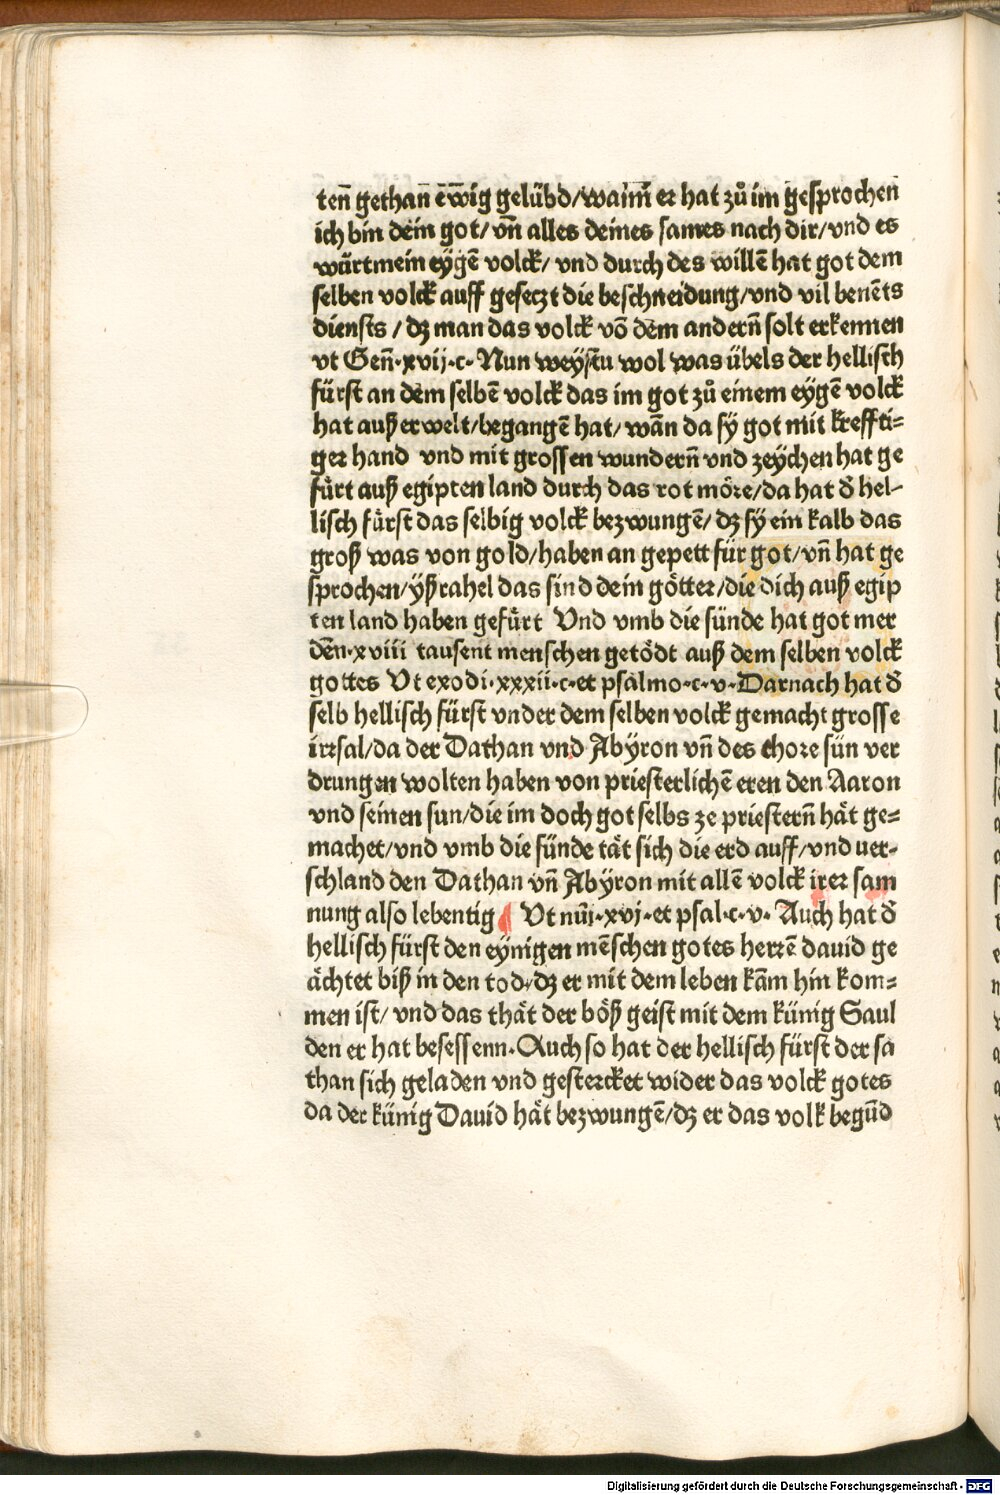 ten̄ gethan̄ ēwig gelübd/wañ er hat zů im gesprochen
ich bin dein got/ vn̄ alles deines sames nach dir/vnd es
würt mein eygē volck/ vnd durch des willē hat got dem
selben volck auff gesetzt die beschneidung/vnd vil benēts
diensts / dz man das volck vō dem andern̄ solt erkennen
vt Gen̄·xvij·c· Nun weystu wol was übels der hellisch
fürst an dem selbē volck das im got zů einem eygē volck
hat auß erwelt/begangē hat/ wān da sÿ got mit kreffti⸗
ger hand vnd mit grossen wundern̄ vnd zeychen hat ge
fürt auß egipten land durch das rot möre/da hat d̄ hel⸗
lisch fürst das selbig volck bezwungē/ dz sÿ ein kalb das
groß was von gold/haben an gepett für got/vn̄ hat ge
sprochen/ÿßrahel das sind dein götter/die dich auß egip
ten land haben gefürt Vnd vmb die sünde hat got mer
den̄·xviii tausent menschen getödt auß dem selben volck
gottes Vt exodi·xxxii·c·et psalmo·c·v·Darnach hat d̄
selb hellisch fürst vnder dem selben volck gemacht grosse
irrsal/da der Dathan vnd Abÿron vn̄ des chore sün ver
drungen wolten haben von priesterlichē eren den Aaron
vnd seinen sun/die im doch got selbs ze priestern̄ hät ge⸗
machet/vnd vmb die sünde tät sich die erd auff/vnd uer⸗
schland den Dathan vn̄ Abÿron mit allē volck irer sam
nung also lebentig Vt nūi·xvj·et psal·c·v· Auch hat d̄
hellisch fürst den eynigen mēschen gotes herrē dauid ge
ächtet biß in den tod/dz er mit dem leben kām hin kom⸗
men ist/ vnd das thät der böß geist mit dem künig Saul
den er hat besessenn·Auch so hat der hellisch fürst der sa
than sich geladen vnd gestercket wider das volck gotes
da der künig Dauid hät bezwungē/dz er das volk begūd
Digitalisierung gefördert durch die Deutsche Forschungsgemeinschaft - DFG